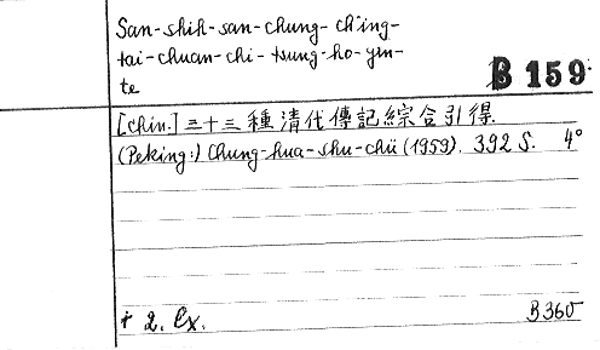 San-shih-san-chung-ch'ing-
tai-chuan-chi-tsung-ho-yin-
te
B 159
[Chin.] 三十三種清代傳記綜合引得.
(Peking:) Chung-hua-shu-chü (1959). 392 S. 4°
+ 2. Ex. B 360